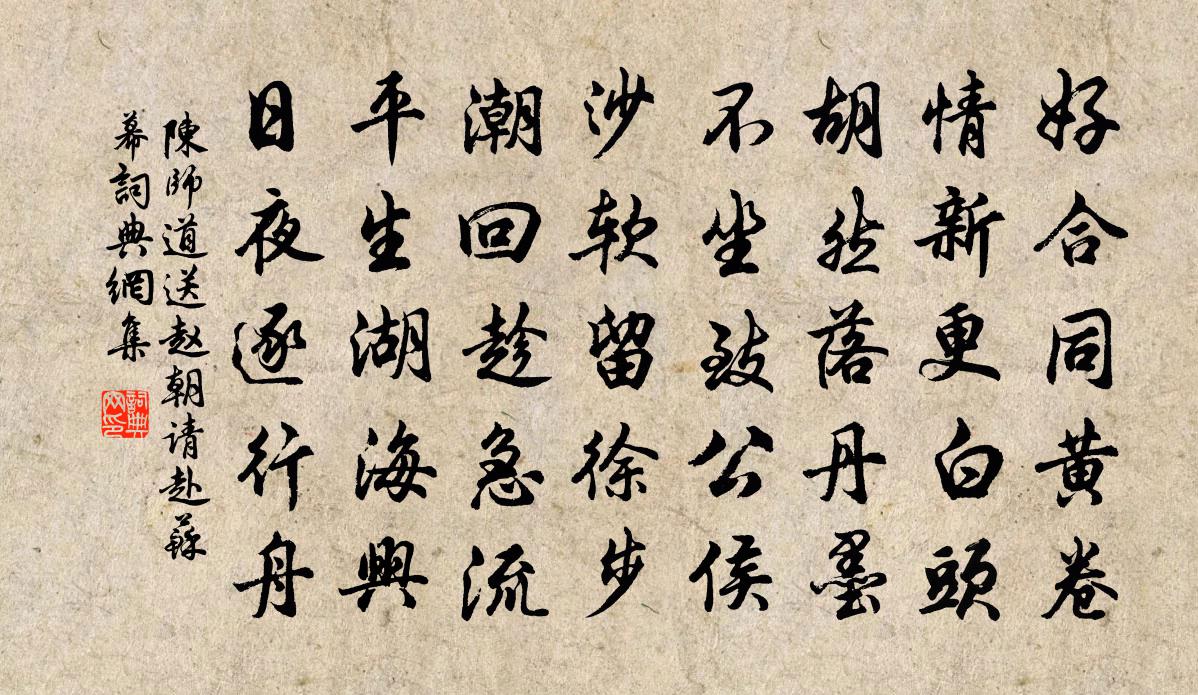 好合同黄卷
情新更白頭
胡然落丹墨
不坐致公侯
沙软留徐步
潮回趁急流
平生湖海興
日夜逐行舟
陳師道送赵朝请赴蘇
幕詞典網集
詞典网印